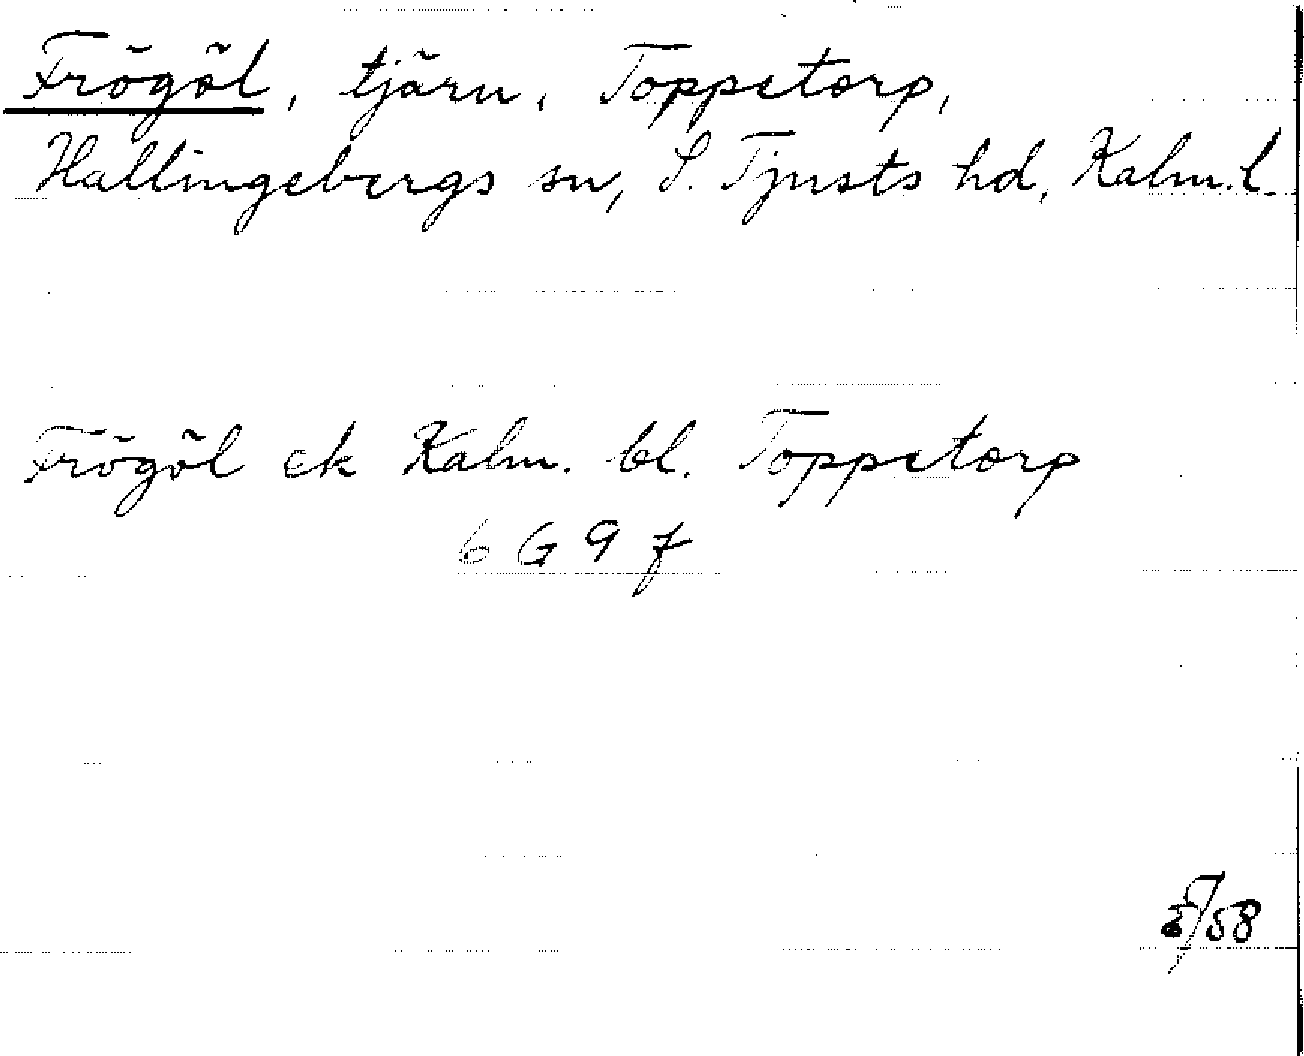 Frögöl, tjärn, Toppetorp,
Hallingebergs sn, S. Tjusts hd, Kalm. l.
Frögöl ek Kalm. bl. Toppetorp
6 G 9 f